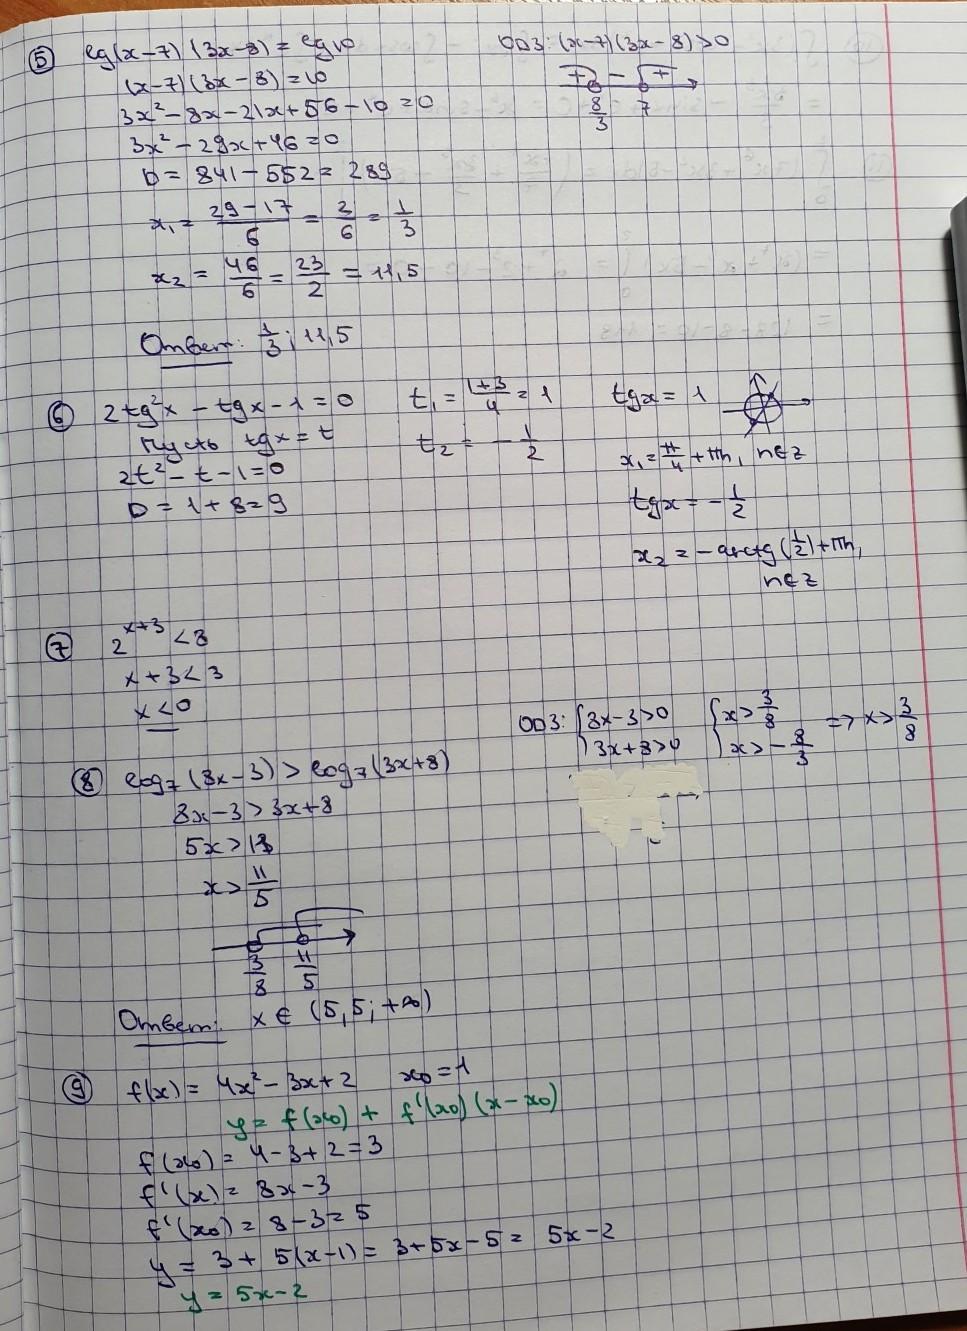 ⑤ lg(x-7)(3x-8) = lg10
ОДЗ: (x-7)(3x-8)>0
(x-7)(3x-8)=10
+ - +
8/3 7
3x²-8x-21x+56-10=0
3x²-29x+46=0
D = 841-552=289
x₁= (29-17)/6 = 2/6 = 1/3
x₂ = 46/6 = 23/2 = 11,5
Ответ: 1/3; 11,5
⑥ 2tg²x - tgx - 1 = 0
Пусть tgx = t
2t² - t - 1 = 0
D = 1 + 8 = 9
t₁ = (1+3)/4 = 1
t₂ = - 1/2
tgx = 1
x₁ = π/4 + πn, n∈z
tgx = - 1/2
x₂ = - arctg(1/2) + πn,
n∈z
⑦ 2^(x+3) < 8
x + 3 < 3
x < 0
ОДЗ: { 8x-3>0 { x> 3/8 => x> 3/8
3x+8>0 x> - 8/3
⑧ log₇(8x-3) > log₇(3x+8)
8x-3 > 3x+8
5x > 11
x > 11/5
3/8 11/5
Ответ: x ∈ (5,5; +∞)
⑨ f(x) = 4x² - 3x + 2 x₀ = 1
y = f(x₀) + f'(x₀)(x-x₀)
f(x₀) = 4-3+2=3
f'(x) = 8x-3
f'(x₀) = 8-3=5
y = 3 + 5(x-1) = 3+5x-5 = 5x-2
y = 5x-2